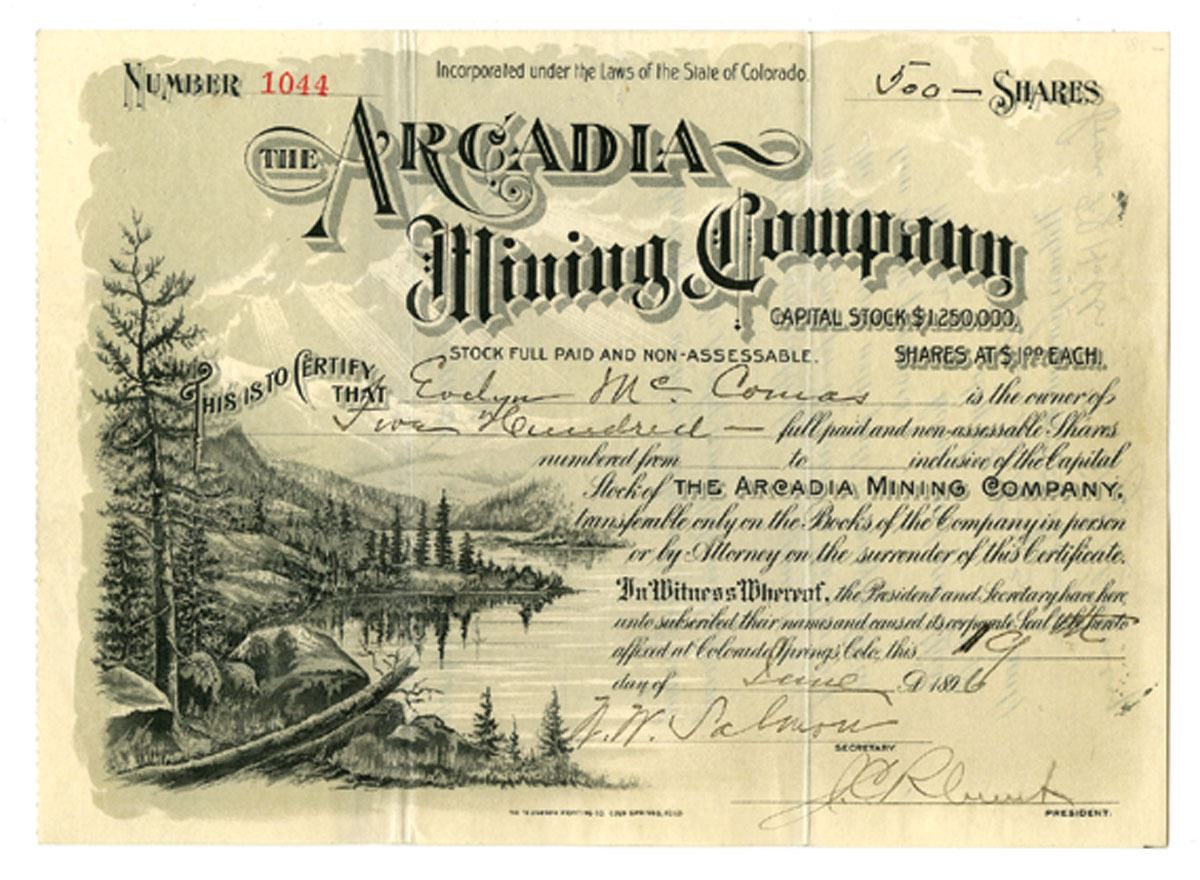 NUMBER 1044
Incorporated under the Laws of the State of Colorado.
500 — SHARES
THE ARCADIA
Mining Company
CAPITAL STOCK $1,250,000.
STOCK FULL PAID AND NON-ASSESSABLE. SHARES AT $1.00 EACH.
THIS IS TO CERTIFY THAT Evelyn Mc Comas is the owner of
Hundred — full paid and non-assessable Shares
numbered from to inclusive of the Capital
Stock of THE ARCADIA MINING COMPANY,
transferable only on the Books of the Company in person
or by Attorney on the surrender of this Certificate.
In Witness Whereof, the President and Secretary have here
unto subscribed their names and caused its corporate Seal to be hereto
affixed at Colorado Springs, Colo, this 19th
day of June A.D. 1896
W. Salmon
SECRETARY
J. C.
PRESIDENT.